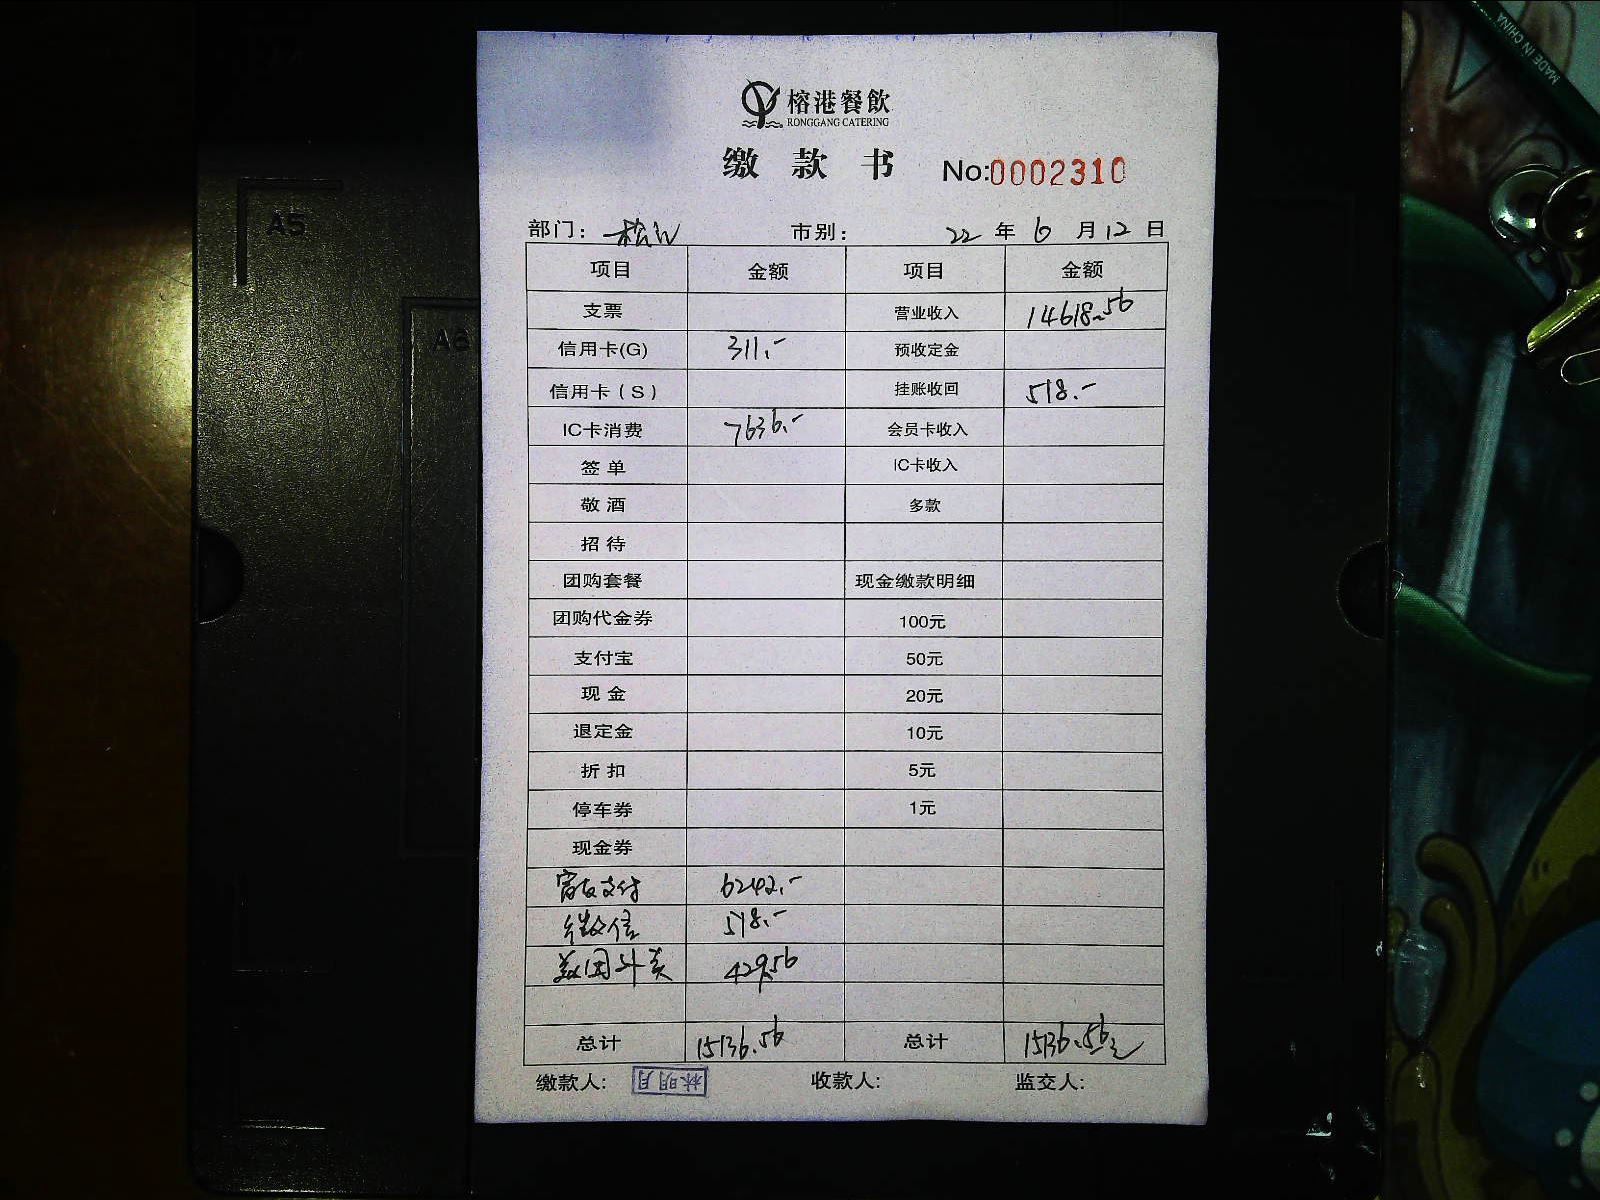 MADE IN CHINA
A5
A6
榕港餐飲
RONGGANG CATERING
缴款书 No:0002310
部门: 松江 市别: 22年6月12日
项目 金额 项目 金额
支票 营业收入 14618.56
信用卡(G) 311.- 预收定金
信用卡(S) 挂账收回 518.-
IC卡消费 7636.- 会员卡收入
签单 IC卡收入
敬酒 多款
招待
团购套餐 现金缴款明细
团购代金券 100元
支付宝 50元
现金 20元
退定金 10元
折扣 5元
停车券 1元
现金券
富友支付 6242.-
微信 518.-
美团外卖 429.56
总计 15136.56 总计 15136.56元
缴款人: 林明月 收款人: 监交人: